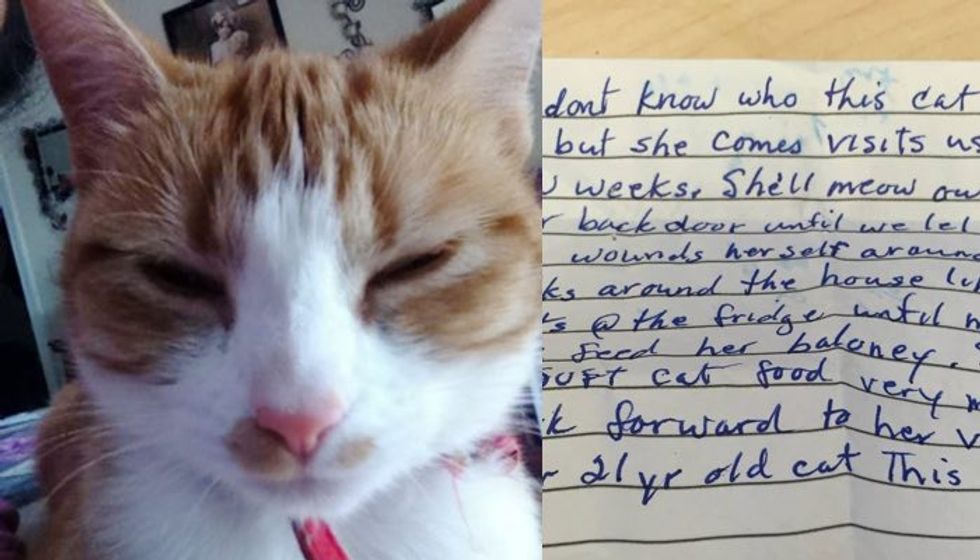 dont know who this cat
but she comes visits us
weeks. She'll meow ou
r back door until we let
wounds herself around
ks around the house
ts @ the fridge until
feed her baloney.
cat food very
k forward to her v
r 21yr old cat This